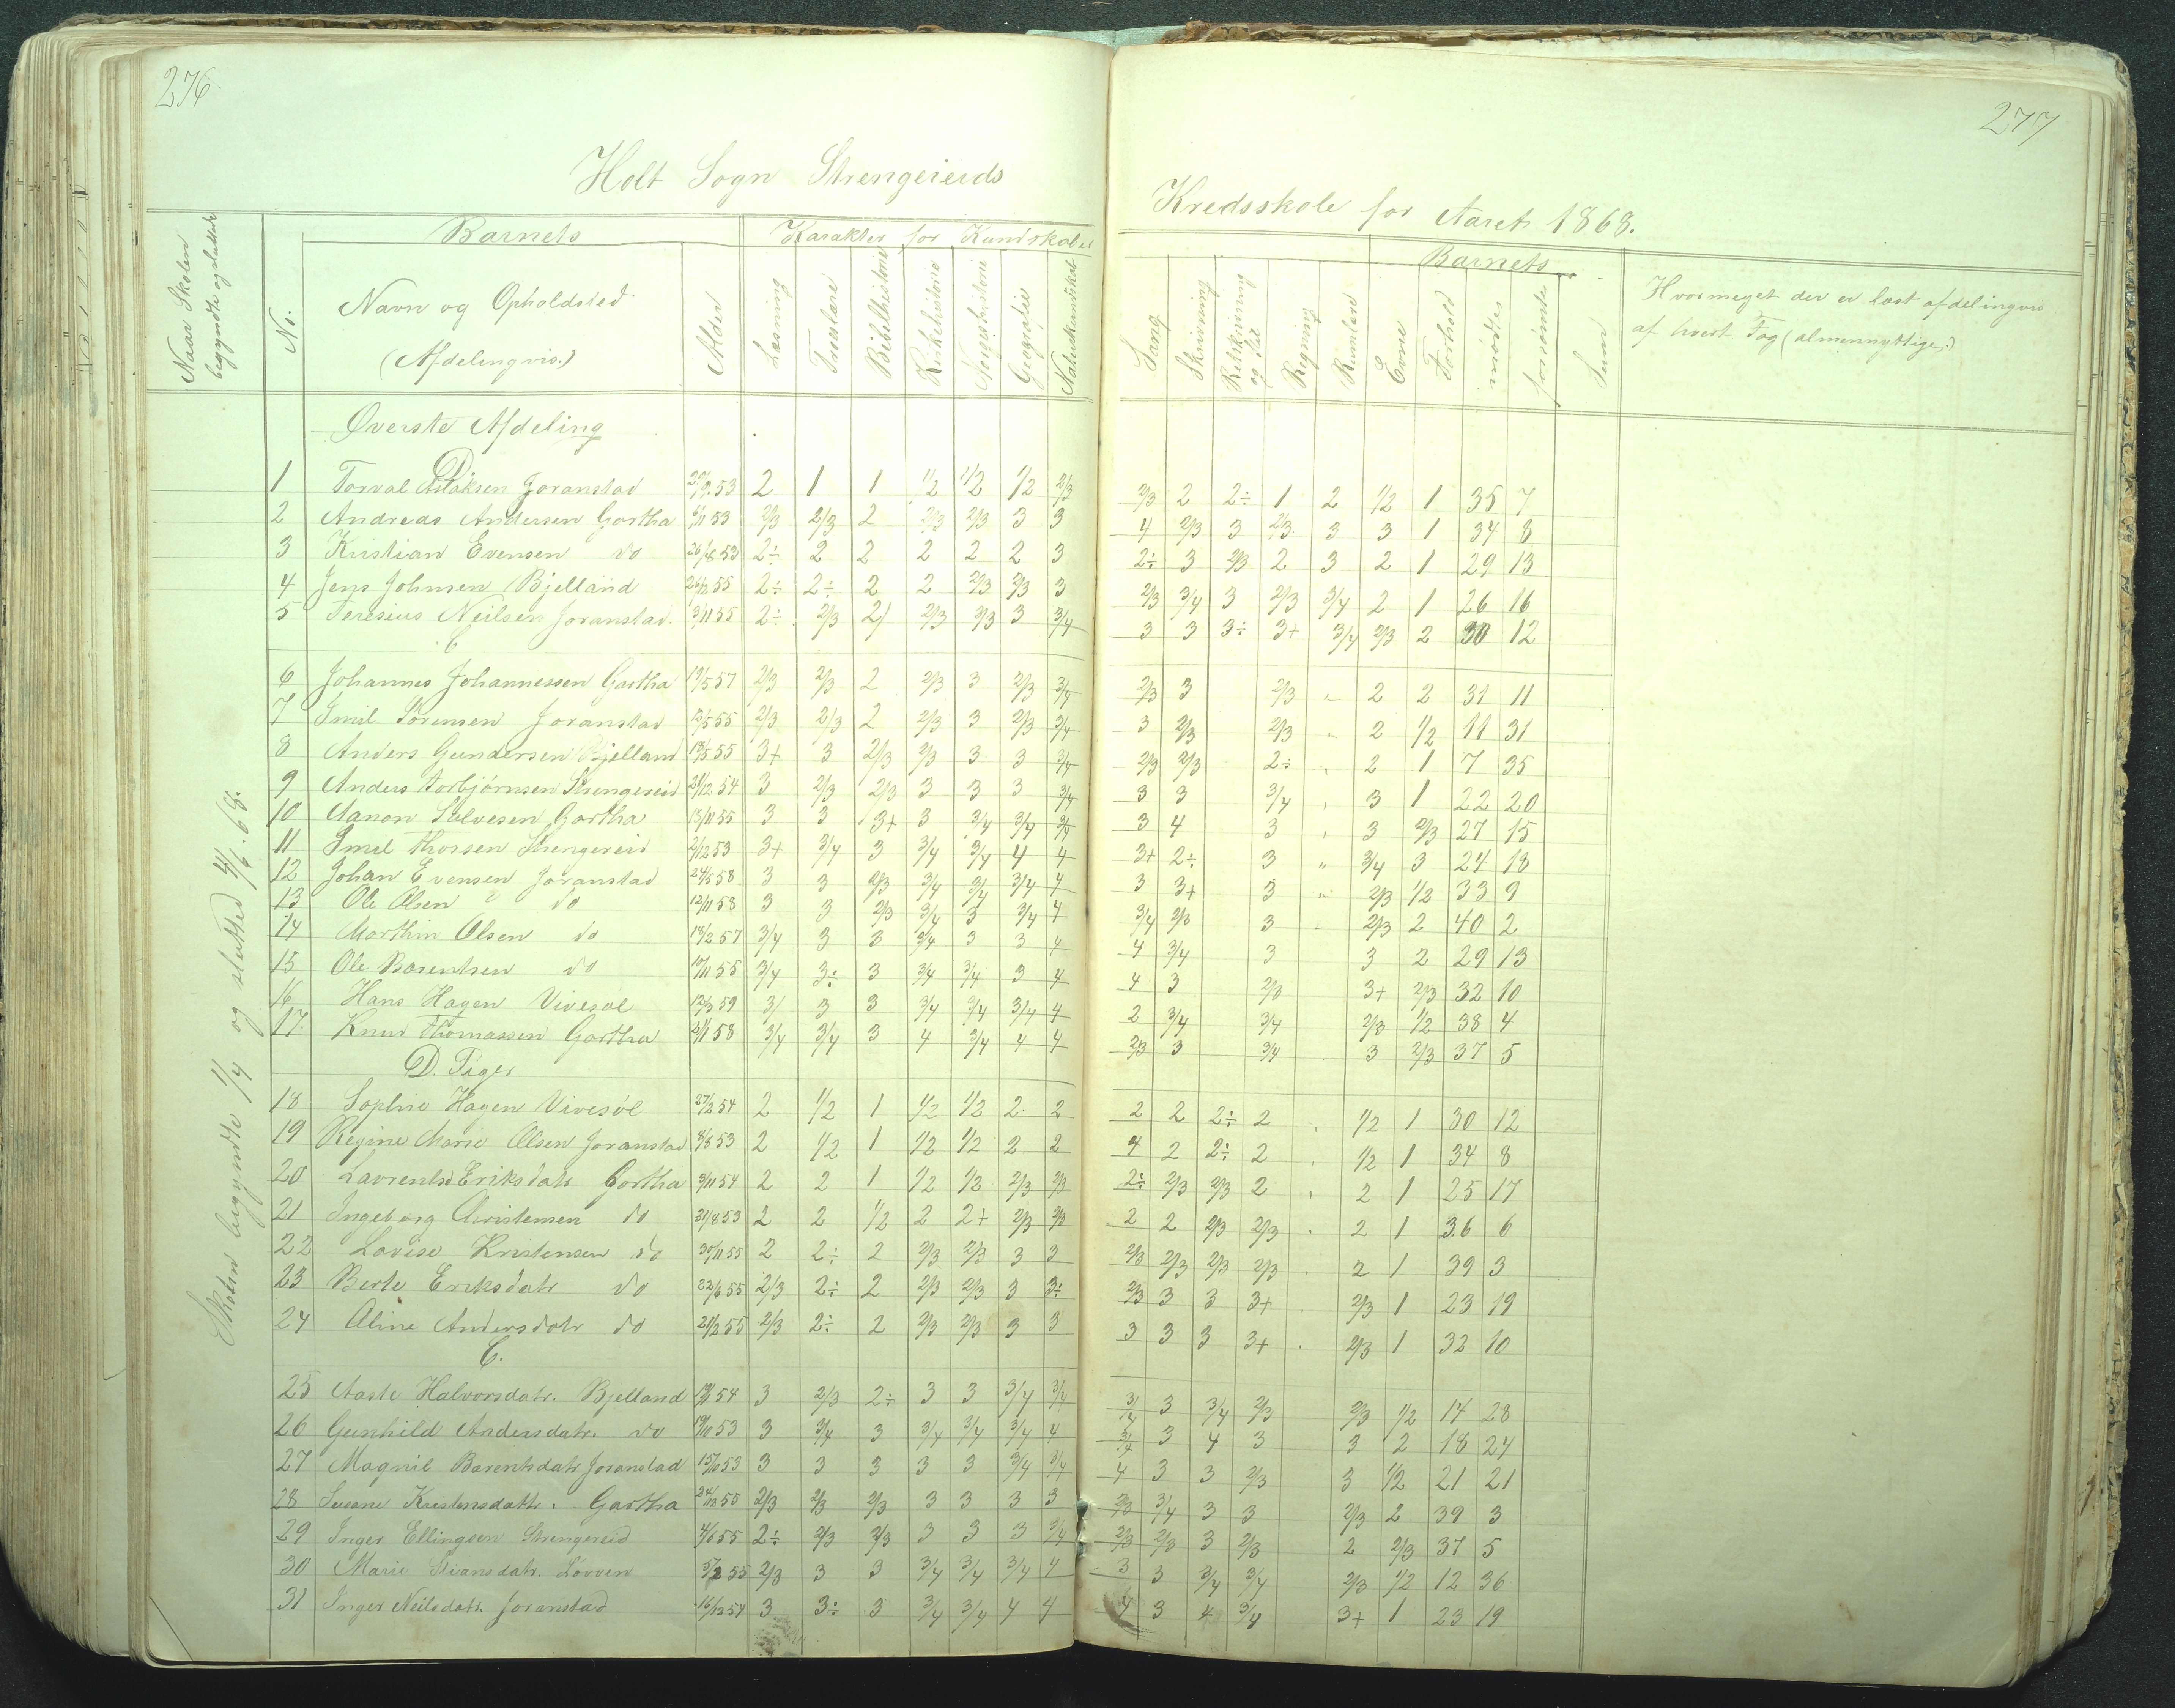 276
277
Holt Sogn Strengereids
Kredsskole for Aaret 1868.
Naar Skolen begyndte og sluttede
No.
Barnets
Navn og Opholdsted
(Afdelingvis.)
Alder
Karakter for Kundskaber
Læsning
Troeslære
Bibelhistorie
Kirkehistorie
Norgeshistorie
Geografie
Naturkundskab
Sang
Skrivning
Retskrivning og Stil
Regning
Rumlære
Barnets
Evne
Forhold
mødte
forsømte
Sum
Hvormeget der er læst afdelingvis
af hvert Fag (almennyttige.)
Skolen begyndte 1/4 og sluttede 4/6. 68.
Øverste Afdeling
D
1 Torval Aslaksen Joranstad 2 1 1 1/2 1/2 1/2 2/3 2/3 2 2÷ 1 2 1/2 1 35 7
2 Andreas Andersen Gartha 6/11 53 2/3 2/3 2 2/3 2/3 3 3 4 2/3 3 2/3 3 3 1 34 8
3 Kristian Evensen do 26/8 53 2÷ 2 2 2 2 2 3 2÷ 3 2/3 2 3 2 1 29 13
4 Jens Johnsen Bjelland 26/2 55 2÷ 2÷ 2 2 2/3 2/3 3 2/3 3/4 3 2/3 3/4 2 1 26 16
5 Teresius Neilsen Joranstad 3/11 55 2÷ 2/3 2/ 2/3 2/3 3 3/4 3 3 3÷ 3+ 3/4 2/3 2 30 12
C
6 Johannes Johannessen Gartha 19/5 57 2/3 2/3 2 2/3 3 2/3 3/4 2/3 3 2/3 " 2 2 31 11
7 Emil Sørensen Joranstad 2/3 2/3 2 2/3 3 2/3 3/4 3 2/3 2/3 " 2 1/2 11 31
8 Anders Gundersen Bjelland 3+ 3 2/3 2/3 3 3 3/4 2/3 2/3 2÷ " 2 1 7 35
9 Anders Torbjørnsen Strengereid 21/12 54 3 2/3 2/3 3 3 3 3/4 3 3 3/4 " 3 1 22 20
10 Aanon Salvesen Gartha 15/11 55 3 3 3+ 3 3/4 3/4 3/4 3 4 3 " 3 2/3 27 15
11 Emil Thorsen Strengereid 2/12 53 3+ 3/4 3 3/4 3/4 4 4 3+ 2÷ 3 " 3/4 3 24 18
12 Johan Evensen Joranstad 24/5 58 3 3 2/3 3/4 3/4 3/4 4 3 3+ 3 " 2/3 1/2 33 9
13 Ole Olsen do 12/11 58 3 3 2/3 3/4 3 3/4 4 3/4 2/3 3 2/3 2 40 2
14 Marthin Olsen do 18/2 57 3/4 3 3 3/4 3 3 4 4 3/4 3 3 2 29 13
15 Ole Barentsen do 10/11 55 3/4 3÷ 3 3/4 3/4 3 4 4 3 2/3 3+ 2/3 32 10
16 Hans Hagen Vivesøl 12/3 59 3/ 3 3 3/4 3/4 3/4 4 2 3/4 3/4 2/3 1/2 38 4
17. Knud Thomassen Gartha 2/1 58 3/4 3/4 3 4 3/4 4 4 2/3 3 3/4 3 2/3 37 5
D. Piger
18 Sophie Hagen Vivesøl 27/2 54 2 1/2 1 1/2 1/2 2 2 2 2 2÷ 2 " 1/2 1 30 12
19 Regine Marie Olsen Joranstad 8/8 53 2 1/2 1 1/2 1/2 2 2 4 2 2÷ 2 " 1/2 1 34 8
20 Lavrentse Eriksdatr Gartha 3/11 54 2 2 1 1/2 1/2 2/3 2/3 2÷ 2/3 2/3 2 " 2 1 25 17
21 Ingeborg Christensen do 31/8 53 2 2 1/2 2 2+ 2/3 2/3 2 2 2/3 2/3 " 2 1 36 6
22 Lovise Kristensen do 30/11 55 2 2÷ 2 2/3 2/3 3 3 2/3 2/3 2/3 2/3 " 2 1 39 3
23 Berte Eriksdatr do 22/6 55 2/3 2÷ 2 2/3 2/3 3 3÷ 2/3 3 3 3+ 2/3 1 23 19
24 Aline Andersdatr do 21/2 55 2/3 2÷ 2 2/3 2/3 3 3 3 3 3 3+ 2/3 1 32 10
C.
25 Aaste Halvorsdatr. Bjelland 3 2/3 2÷ 3 3 3/4 3/4 3/4 3 3/4 2/3 2/3 1/2 14 28
26 Gunhild Andersdatr. do 19/10 53 3 3/4 3 3/4 3/4 3/4 4 3/4 3 4 3 3 2 18 24
27 Magnil Barentsdatr Joranstad 15/10 53 3 3 3 3 3 3/4 3/4 4 3 3 2/3 3 1/2 21 21
28 Susane Kristensdattr. Gartha 2/3 2/3 2/3 3 3 3 3 2/3 3/4 3 3 2/3 2 39 3
29 Inger Ellingsen Strengereid 4/6 55 2÷ 2/3 2/3 3 3 3 3/4 2/3 2/3 3 2/3 2 2/3 37 5
30 Marie Stiansdatr. Løvven 5/2 55 2/3 3 3 3/4 3/4 3/4 4 3 3 3/4 3/4 2/3 1/2 12 36
31 Inger Neilsdatr. Joranstad 16/12 54 3 3÷ 3 3/4 3/4 4 4 4 3 4 3/4 3+ 1 23 19